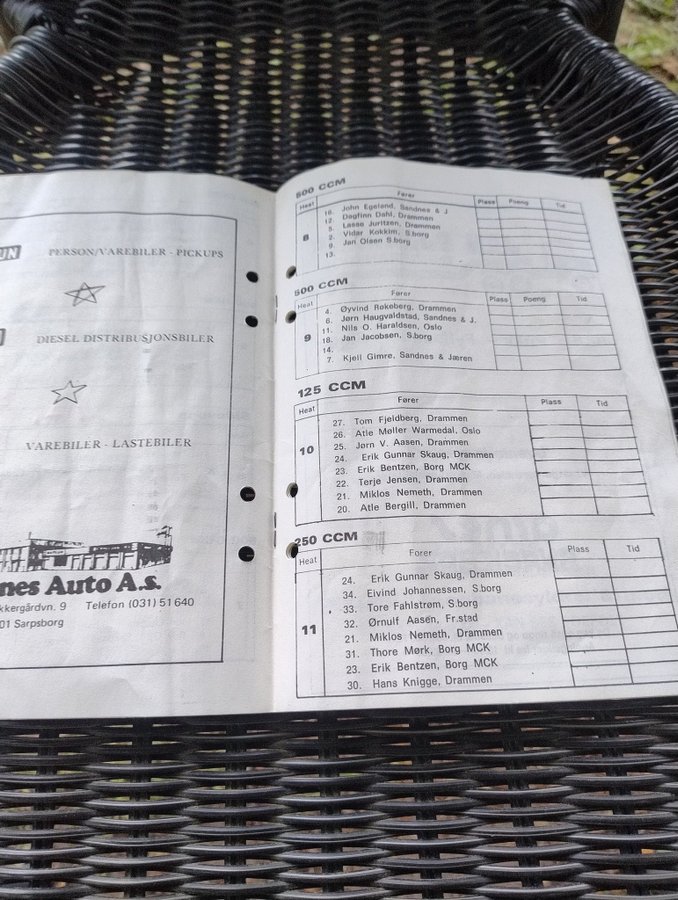 PERSON/VAREBILER - PICKUPS
DIESEL DISTRIBUSJONSBILER
VAREBILER - LASTEBILER
nes Auto A.s.
kkergårdvn. 9 Telefon (031) 51 640
01 Sarpsborg
500 CCM
Heat Fører Plass Poeng Tid
8
10. John Egeland, Sandnes & J
12. Dagfinn Dahl, Drammen
5. Lasse Juritzen, Drammen
2. Vidar Kokkim, S.borg
9. Jan Olsen S.borg
13.
500 CCM
Heat Fører Plass Poeng Tid
9
4. Øyvind Rokeberg, Drammen
6. Jørn Haugvaldstad, Sandnes & J.
11. Nils O. Haraldsen, Oslo
18. Jan Jacobsen, S.borg
14.
7. Kjell Gimre, Sandnes & Jæren
125 CCM
Heat Fører Plass Tid
10
27. Tom Fjeldberg, Drammen
26. Atle Møller Warmedal, Oslo
25. Jørn V. Aasen, Drammen
24. Erik Gunnar Skaug, Drammen
23. Erik Bentzen, Borg MCK
22. Terje Jensen, Drammen
21. Miklos Nemeth, Drammen
20. Atle Bergill, Drammen
250 CCM
Heat Fører Plass Tid
11
24. Erik Gunnar Skaug, Drammen
34. Eivind Johannessen, S.borg
33. Tore Fahlstrøm, S.borg
32. Ørnulf Aasen, Fr.stad
21. Miklos Nemeth, Drammen
31. Thore Mørk, Borg MCK
23. Erik Bentzen, Borg MCK
30. Hans Knigge, Drammen